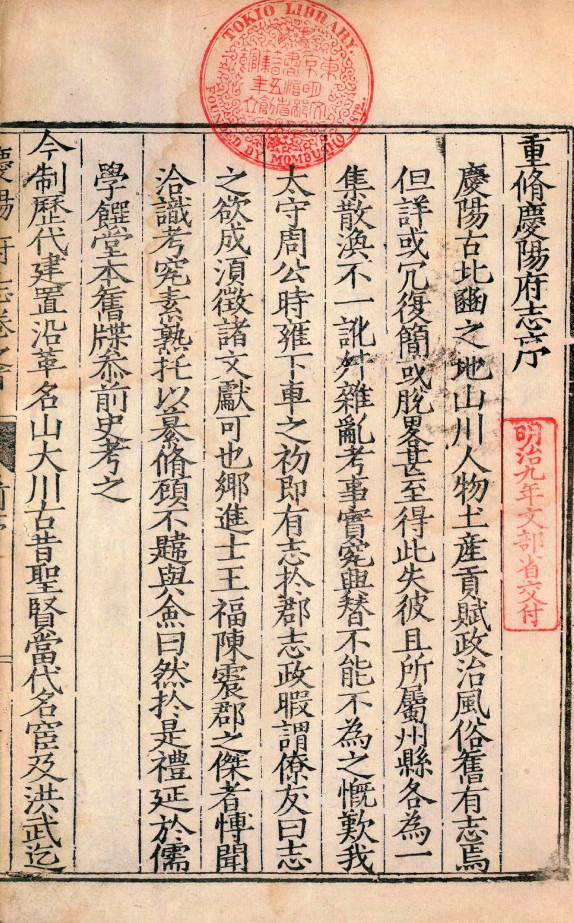 TOKIO LIBRARY
FOUNDED BY MOMBUSHO
明治九年文部省交付
重脩慶陽府志序
慶陽古北豳之地山川人物土產貢賦政治風俗舊有志焉
但詳或冗復簡或脫畧甚至得此失彼且所屬州縣各為一
集散渙不一訛舛雜亂考事實究興替不能不為之慨歎我
太守周公時雍下車之初即有志於郡志政暇謂僚友曰志
之欲成須徵諸文獻可也鄉進士王福陳震郡之傑者博聞
洽識考究素熟托以纂脩顧不韙與僉曰然於是禮延於儒
學饌堂本舊牒叅前史考之
今制歷代建置沿革名山大川古昔聖賢當代名宦及洪武迄